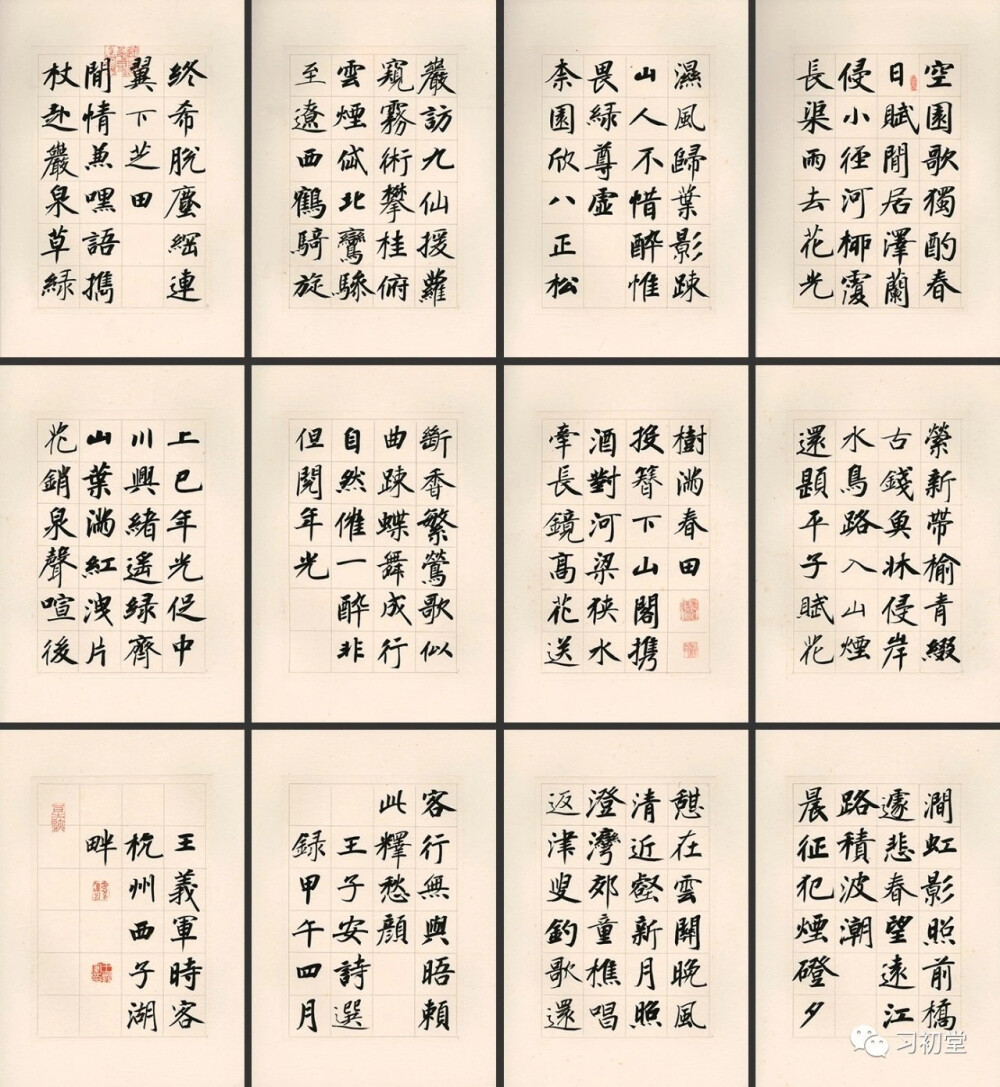 空園歌獨酌春
日賦閒居澤蘭
侵小徑河柳覆
長渠雨去花光
濕風歸葉影疎
山人不惜醉惟
畏綠尊虛
柰園欣八正松
巖訪九仙援蘿
窺霧術攀桂俯
雲煙北鸞驂
至遼西鶴騎旋
終希脫塵網連
翼下芝田
閒情兼嘿語攜
杖赴巖泉草綠
縈新帶榆青綴
古錢魚牀侵岸
水鳥路入山煙
還題平子賦花
樹滿春田
投簪下山閣携
酒對河梁狹水
牽長鏡高花送
斷香繁鶯歌似
曲疎蝶舞成行
自然催一醉非
但閱年光
上巳年光促中
川興緒遙綠齊
山葉滿紅洩片
花銷泉聲喧後
澗虹影照前橋
遽悲春望遠江
路積波潮
晨征犯煙磴夕
憇在雲關晚風
清近壑新月照
澄灣郊童樵唱
返津叟釣歌還
客行無與晤賴
此釋愁顏
王子安詩選
錄甲午四月
王義軍時客
杭州西子湖
畔
习初堂